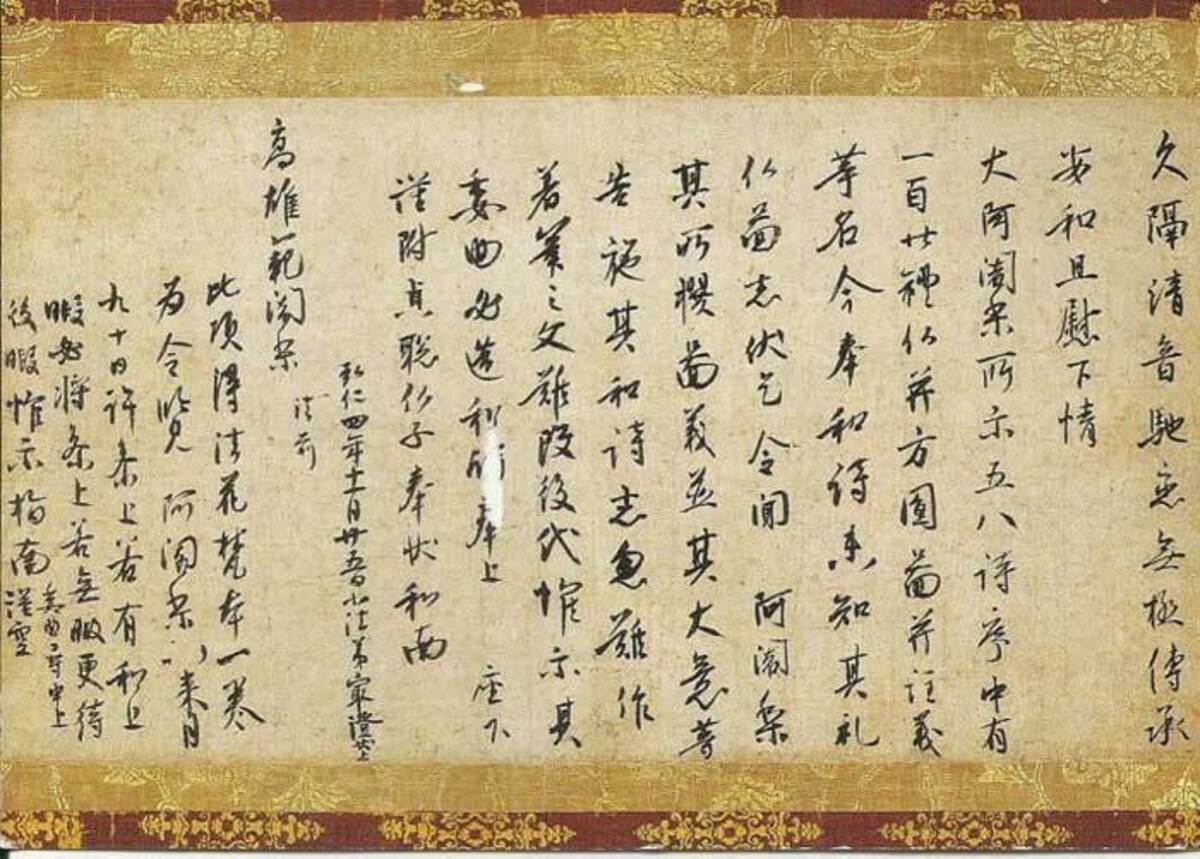 久隔清音馳恋無極傳承
安和且慰下情
大阿闍梨所示五八詩序中有
一百廿禮仏并方圓圖并注義
等名今奉和詩未知其礼
仏圖者伏乞令聞 阿闍梨
其所撰圖義並其大意等
告施其和詩者忽難作
著筆之文難改後代惟示其
委曲必造和詩奉上 座下
謹附貞聡仏子奉状和南
弘仁四年十一月廿五日小法弟最澄状上
高雄範闍梨
法前
此頃得法花梵本一巻
為令覧 阿闍梨以来月
九十日許参上若有和上
暇必将参上若無暇更待
後暇惟示指南
謹空